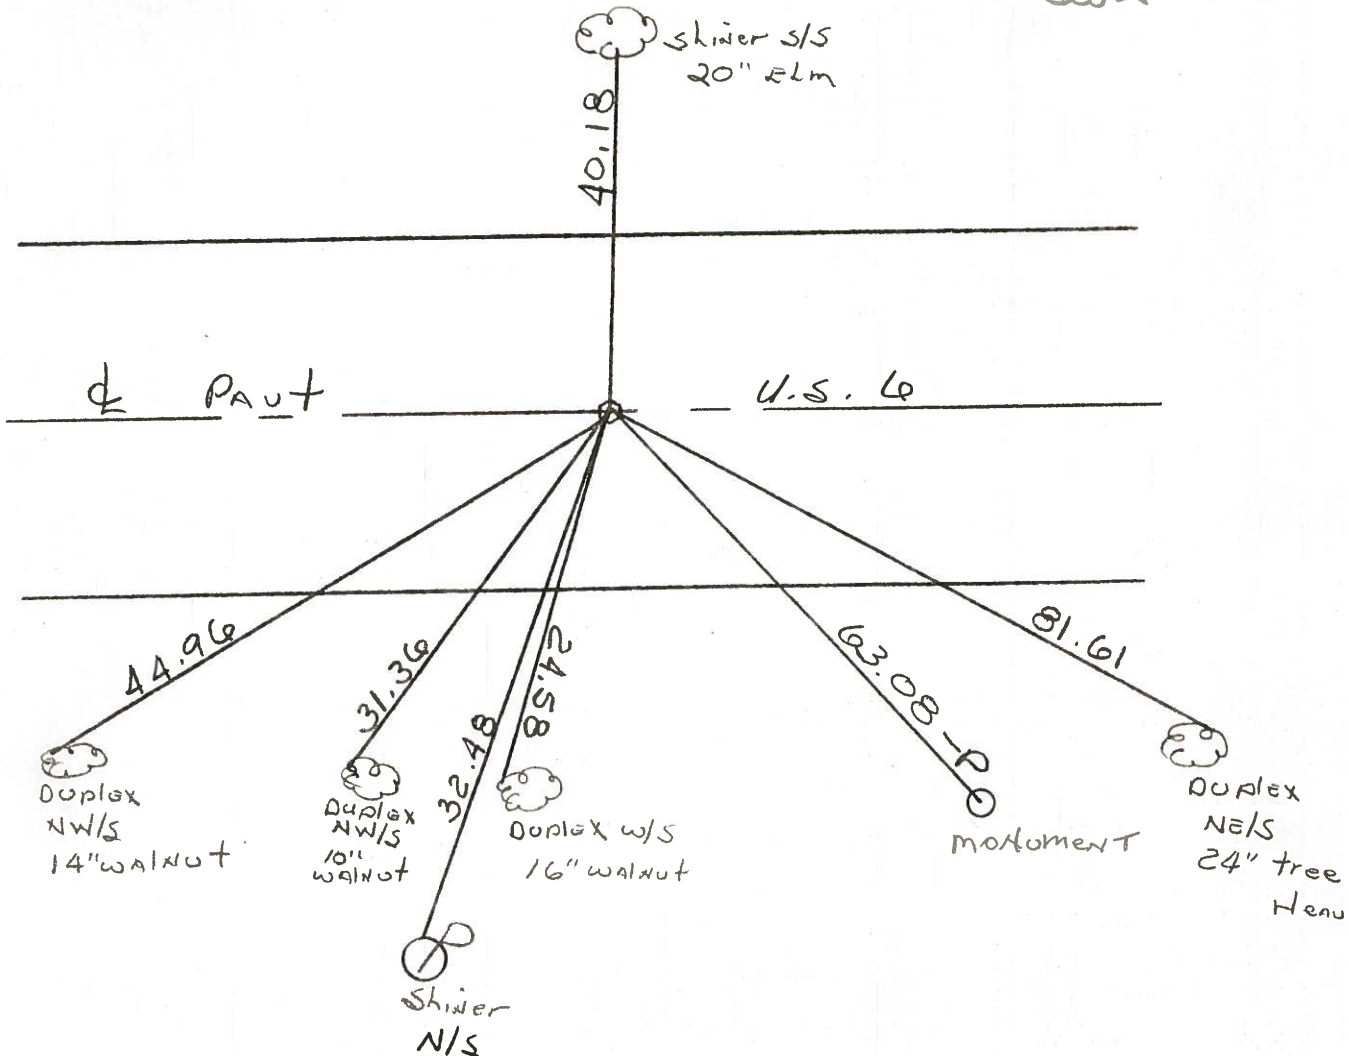 Shiner S/S
20" Elm
40.18
℄ PAVt U.S. 6
44.96
31.36
32.48
24.58
63.08-P
81.61
Duplex
NW/S
14" WALNUt
Duplex
NW/S
10"
WALNUt
Duplex W/S
16" WALNUt
MONUMENT
Duplex
NE/S
24" tree
Shiner
N/S